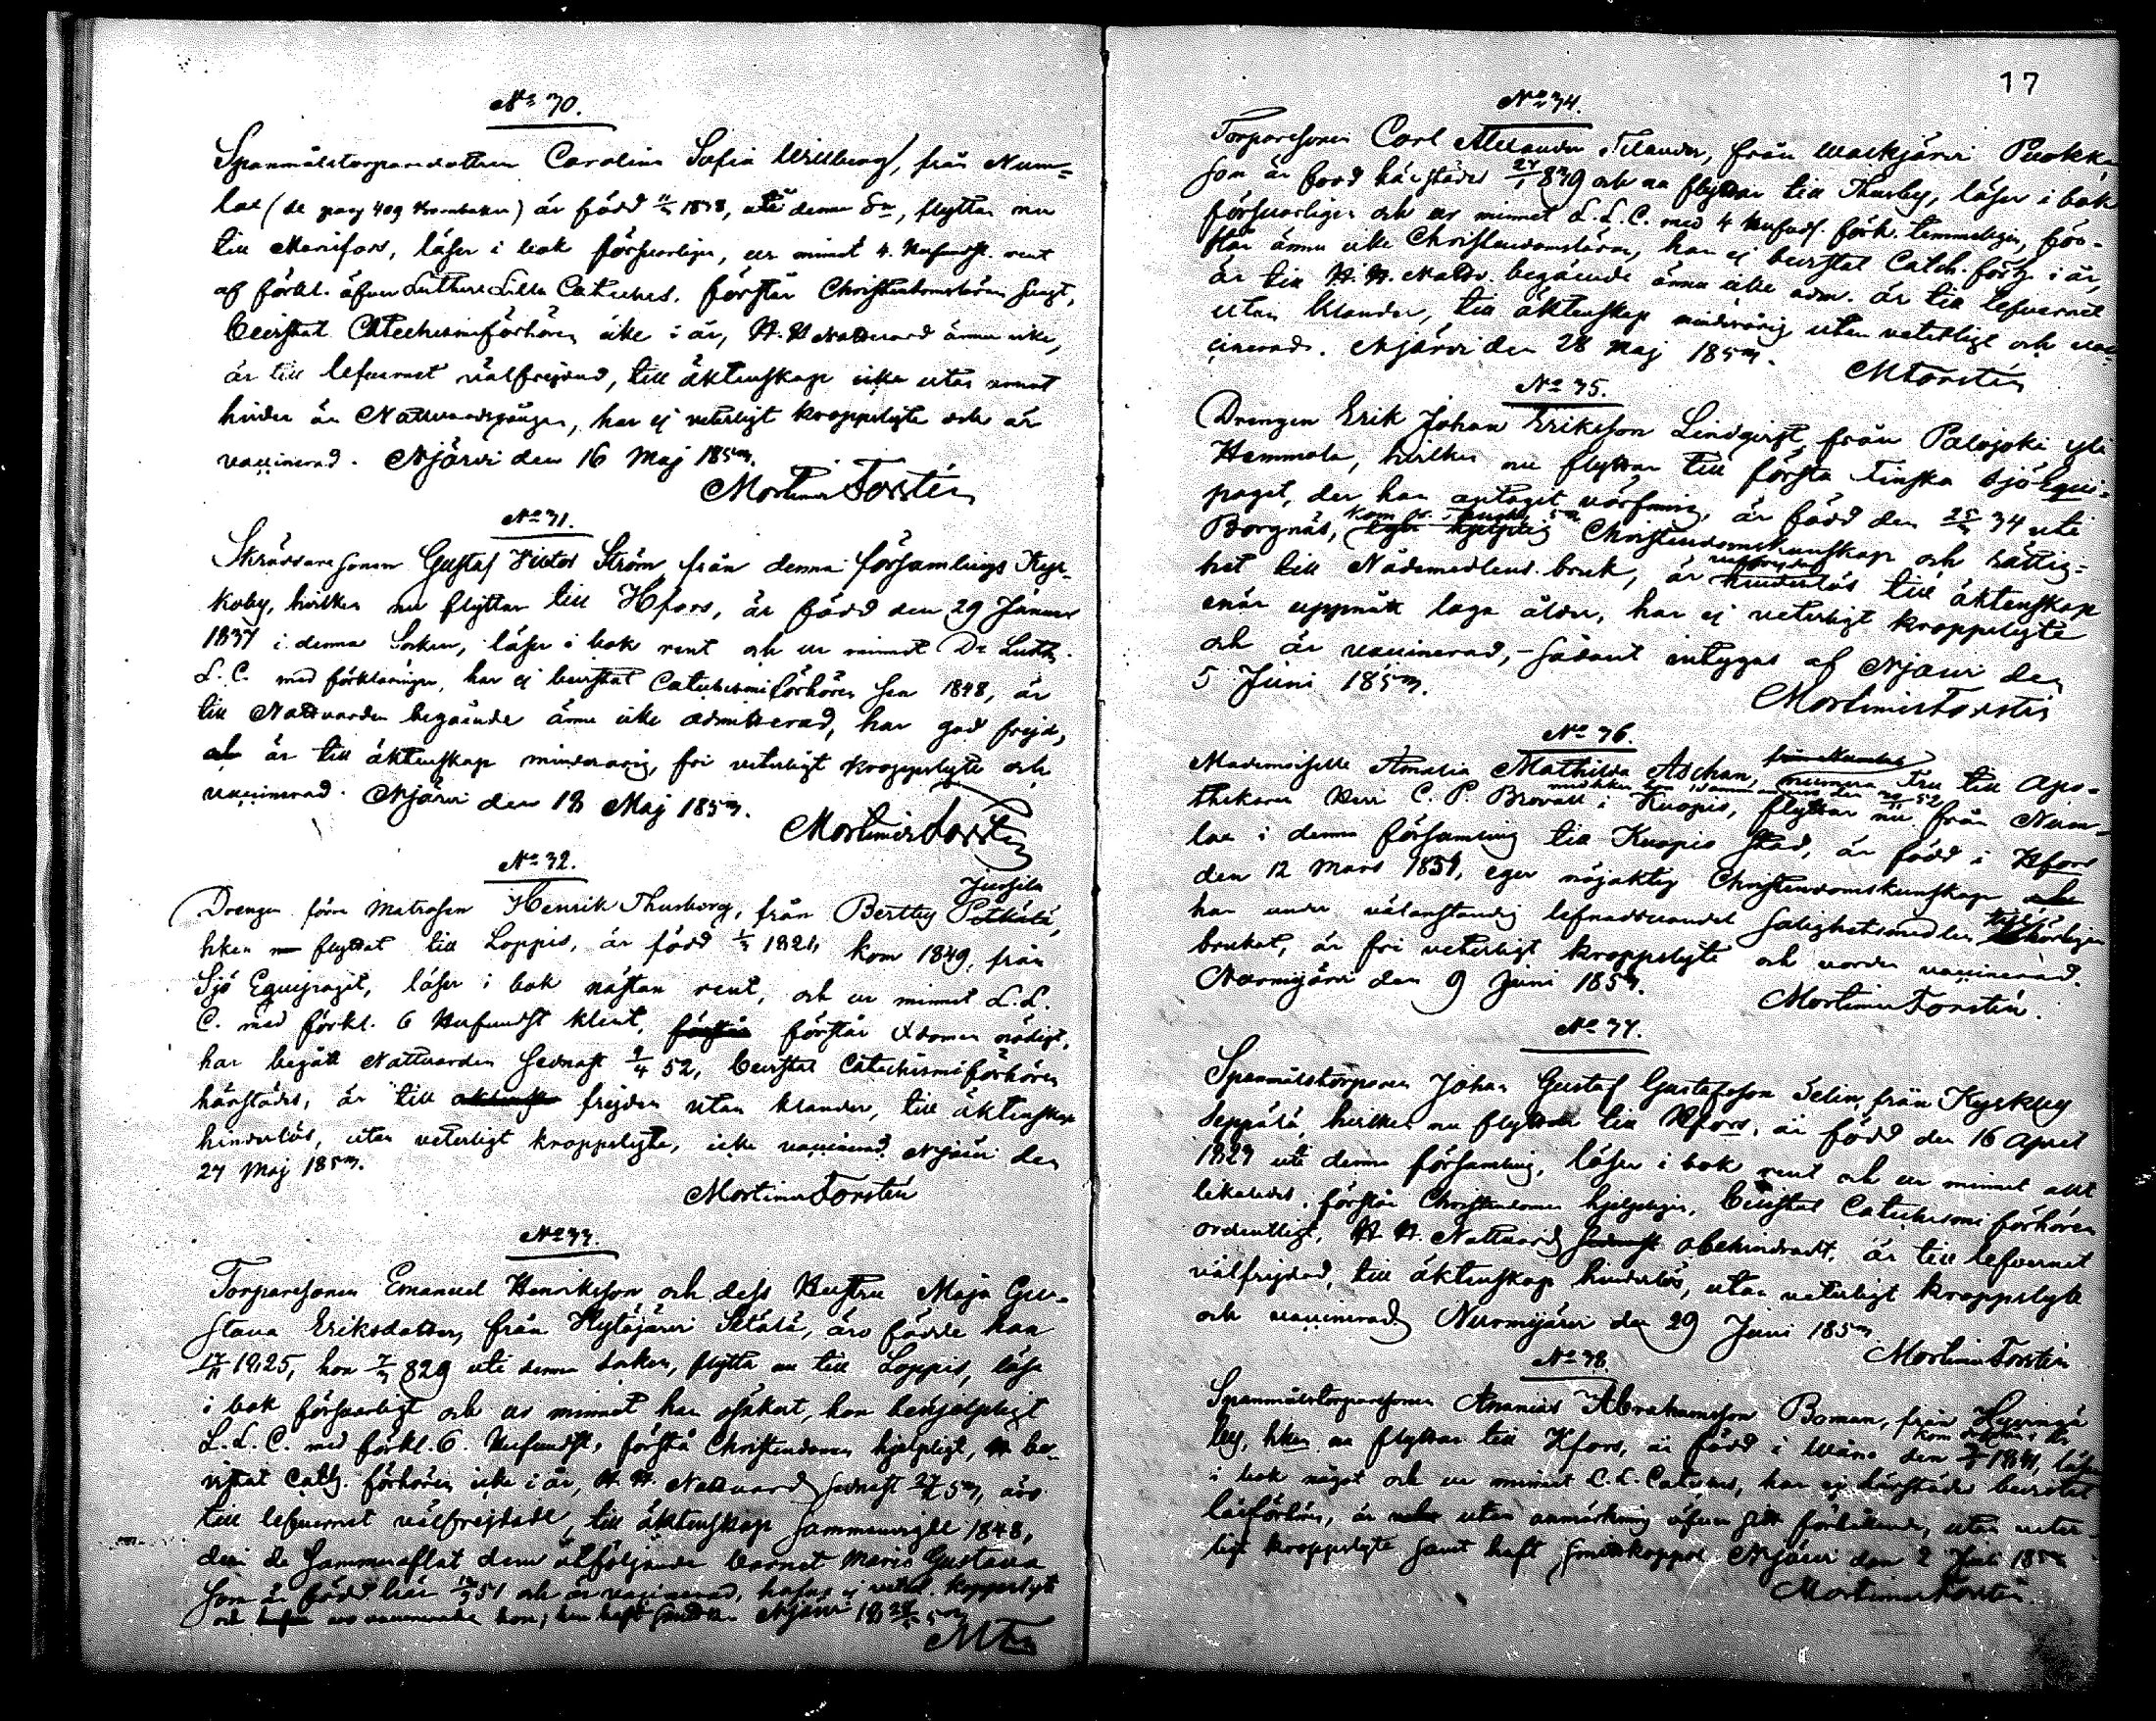 No 30.
Spanmålstorparedottren Carolina Sofia Willberg, från Num=
lax (de pag 409 Krombacka) är född 1838, uti denna Sn, flyttar nu
till Mariefors, läser i bok försvarligen, ur minnet 4. Hufvudst. rent
af förkl. äfven Lutheri Lilla Cateches. förstår Christendomsläran svagt,
bevistat Catechismiförhören icke i år, H. H. Nattvard ännu icke,
är till lefvernet välfrejdad, till äktenskap icke utan annat
hinder än Nattvardsgången, har ej veterligt kroppslyte och är
vaccinerad. Njärvi den 16 Maj 1853.
Mortimer Forstén
No 31.
Skräddaresonen Gustaf Victor Ström från denna församlings Kyr-
koby, hvilken nu flyttar till Hfors, är född den 29 Januar
1837 i denna Socken, läser i bok rent och ur minnet Dr Luth.
L. C. med förklaringen, har ej bevistat Catechismiförhören sen 1848, är
till Nattvarden begående ännu icke admitterad, har god frejd,
och är till äktenskap minderårig, fri veterligt kroppslyte och
vaccinerad. Njärvi den 18 Maj 1853.
Mortimer Forstén
No 32.
Jussila
Drengen förre Matrosen Henrik Thusberg, från Bertby
hken nu flyttat till Loppis, är född 1821, kom 1849, från
Sjö Equipaget, läser i bok nästan rent, och ur minnet L. L.
C. med förkl. 6 Hufvudst klent, förstår Xdomen nödigt,
har begått Nattvarden sednast 9/4 52, bevistat Catechismiförhören
härstädes, är till frejden utan klander, till äktenskap
hinderlös, utan veterligt kroppslyte, icke vaccinerad. Njärvi den
27 Maj 1853.
Mortimer Forstén
No 33.
Torparesonen Emanuel Henriksson och dess Hustru Maja Gu-
stava Eriksdotter, från Hytäjärvi Sätälä, äro födde han
1825, hon 829 uti denna Socken, flytta nu till Loppis, läsa
i bok försvarligt och ur minnet han osäkert, hon behjelpligt
L. L. C. med förkl. 6. Hufvudst, förstå Christendomen hjelpligt, be-
vistat Catch. förhören icke i år, H. H. Nattvard sednast 53, äro
till lefvernet välfrejdade, till äktenskap sammanvigde 1848,
deri de sammanaflat dem åtföljande barnet Maria Gustava
som är född här 51 och är vaccinerad, hafva ej veterl. kroppslyte
och äro vaccinerade hon; han haft Njärvi
MFn
17
No 34.
Torparesonen Carl Alexander Felander, från Warkjärvi Puokka
som är född härstädes 27/1 839 och nu flyttar till Thusby, läser i bok
försvarligen och ur minnet L. L. C. med 4 Hufvuds. förk. temmeligen, för-
står ännu icke Christendomsläran, har ej bevistat Catech. förh. i år,
är till H. H. Nattv. begående ännu icke adm. är till lefvernet
utan klander, till äktenskap minderårig utan veterligt och vac-
cinerad. Njärvi den 28 Maj 1853.
MForstén
No 35.
Drengen Erik Johan Eriksson Lindqvist, från Palojoki Yli
Hemmola, hvilken nu flyttar till första Finska Sjö Equi-
paget, der han antagit värfning, är född den 34 uti
Borgnäs, Christendomskunskap och rättig-
het till Nådemedlens bruk, är hinderlös till äktenskap
enär uppnått laga ålder, har ej veterligt kroppslyte
och är vaccinerad, - sådant intygas af Njärvi den
5 Juni 1853.
Mortimer Forstén
No 36.
Mademoiselle Amalia Mathilda Aschan, numera Fru till Apo-
thekaren Herr C. P. Brovall i Kuopio, flyttar nu från Num-
lax i denna församling till Kuopio stad, är född i Hfors
den 12 Mars 1831, eger nöjaktig Christendomskunskap
har under välanständig lefnadsvandel salighetsmedlen
brukat, är fri veterligt kroppslyte och vorden vaccinerad.
Nurmijärvi den 9 Juni 1853.
Mortimer Forstén.
No 37.
Spanmålstorparen Johan Gustaf Gustafsson Selin, från Kyrkby
Seppälä, hvilken nu flyttar till Hfors, är född den 16 April
1829 uti denna församling, läser i bok rent och ur minnet allt
likaledes, förstår Christendomen hjelpligen, bevistat Catechismiförhören
ordentligt, H. H. Nattvard obehindradt, är till lefvernet
välfrejdad, till äktenskap hinderlös, utan veterligt kroppslyte
och vaccinerad. Nurmijärvi den 29 Juni 1853.
Mortimer Forstén
No 38.
Spanmålstorparesonen Ananias Abrahamsson Boman, från Hyvingä
by, hken nu flyttar till Hfors, är född i Wånå den 1841, läser
i bok något och ur minnet L. L. Cateches, har ej härstädes bevistat
läsförhör, är utan anmärkning äfven sitt förhållande, utan veter-
ligt kroppslyte samt haft smittkoppor. Njärvi den 2 Juli 1853
Mortimer Forstén